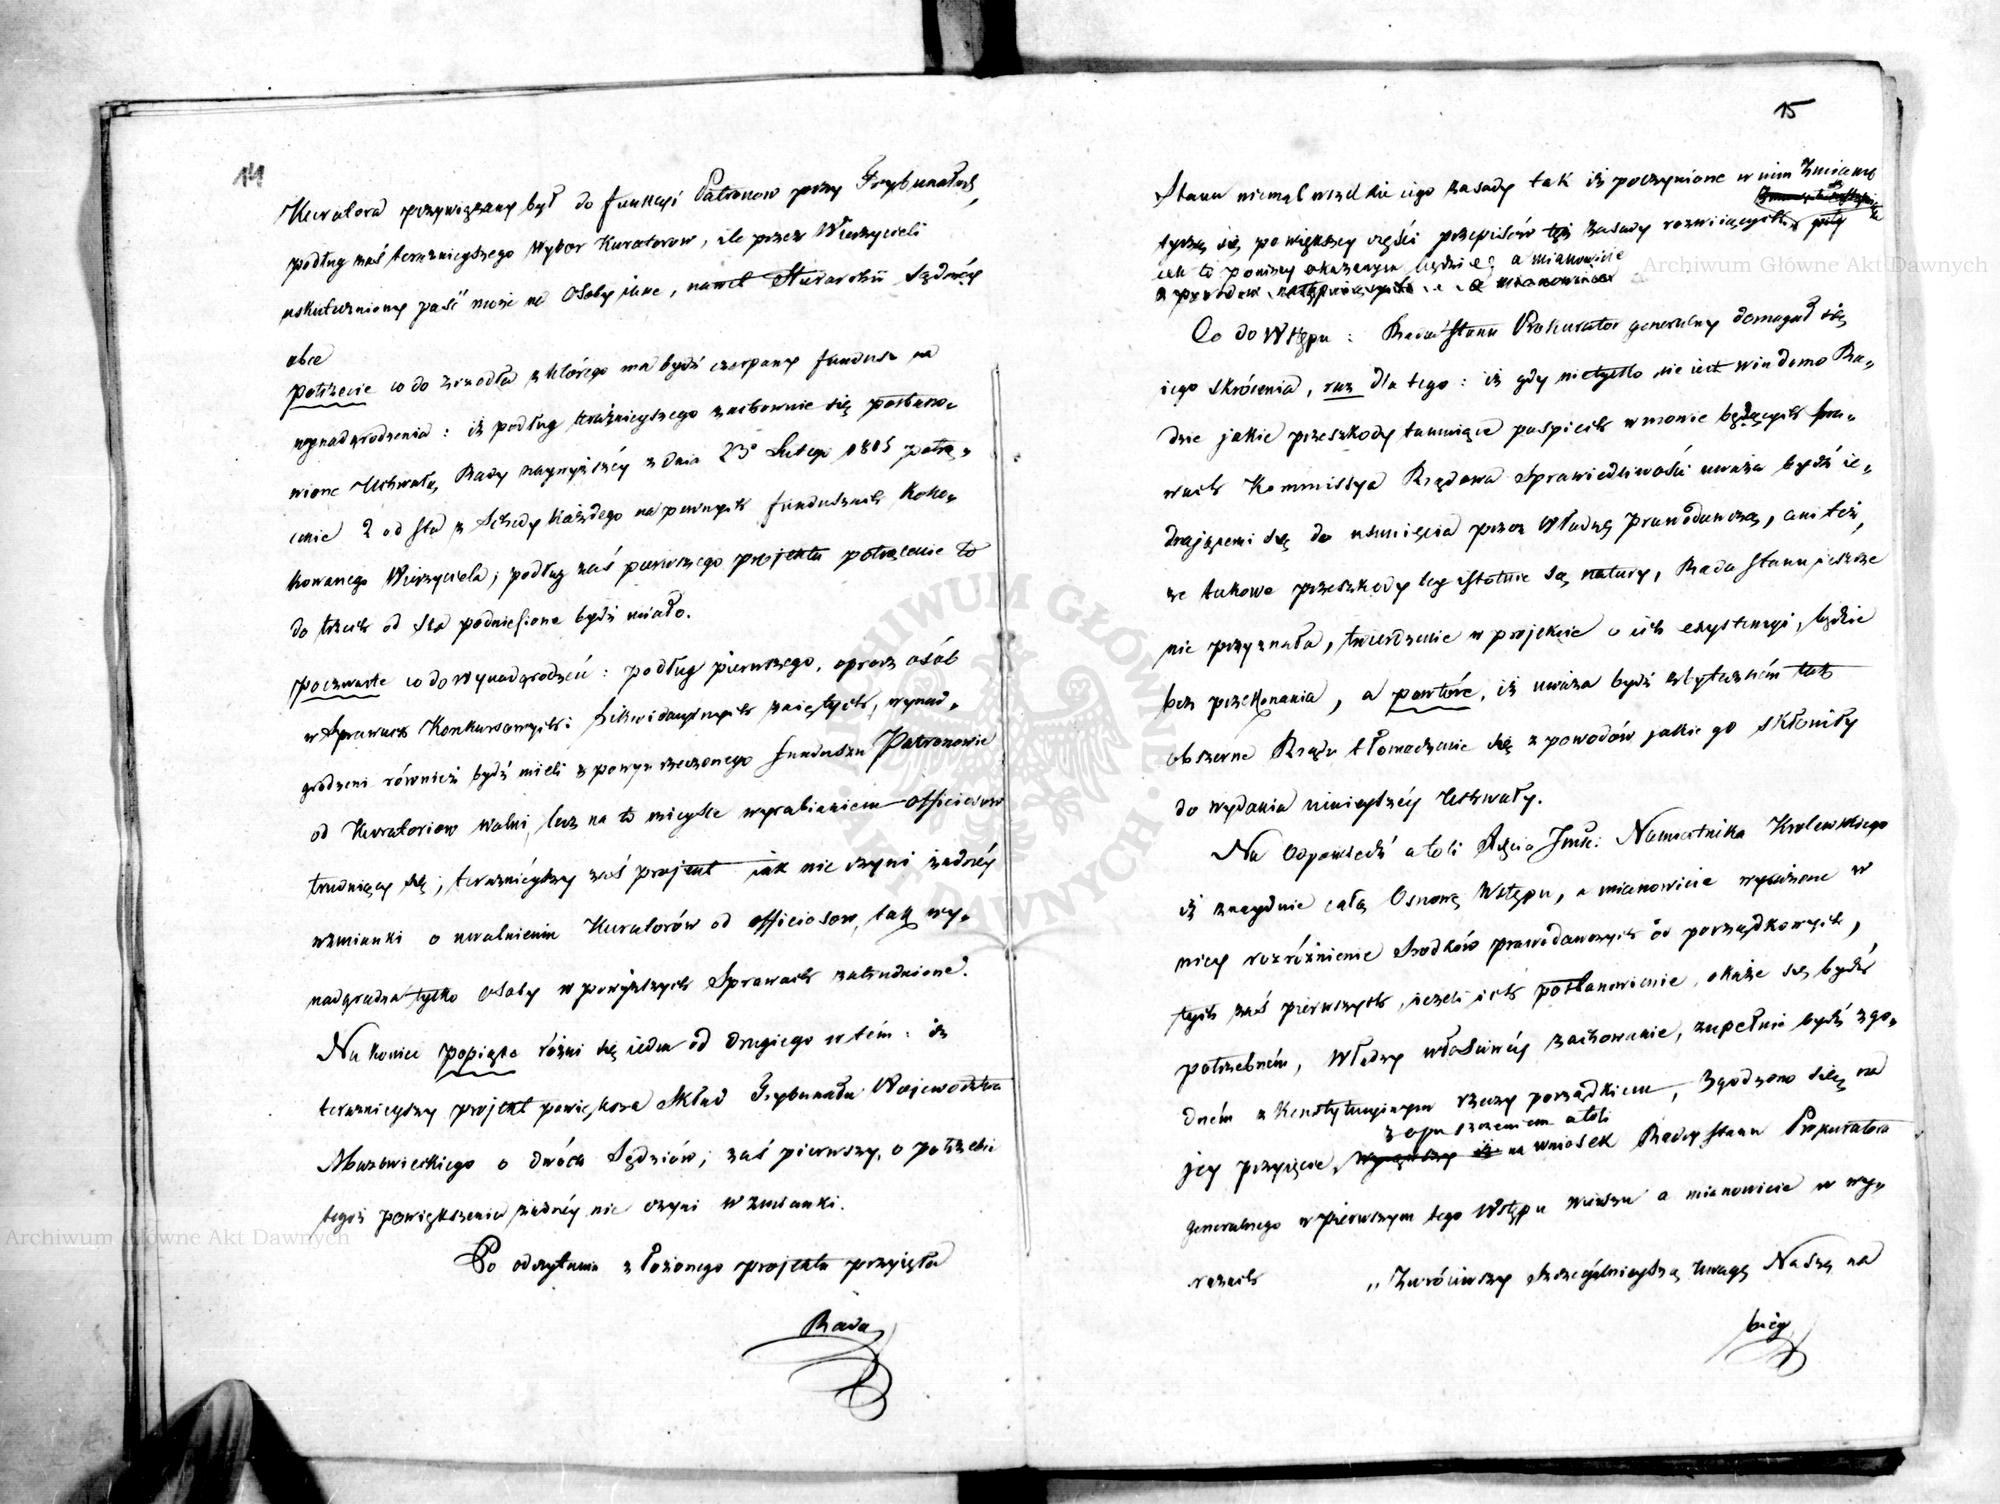 14
Kuratora przywiązany był do funkcyi Patronow przy Trybunałach,
podług zaś teraznieyszego wybor Kuratorow, ile przez Wierzycieli
uskuteczniony paść może na Osoby inne, nawet Sądowey
obce
potrzecie co do zrzodła z którego ma bydź czerpany fundusz na
wynadgrodzenia: iż podług teraźnieyszego zachownie się postano-
wione Uchwałą Rady naywyższéy z dnia 23° Lutego 1805 potrą-
cenie 2 od sta z Schedy każdego na pewnych funduszach koko-
kowanego Wierzyciela; podług zaś pierwszego projektu potrącenie to
do trzech od sta podniesione bydź miało.
poczwarte co do wynadgrodzeń: podług pierwszego, oprocz osób
w Sprawach Konkursowych i Likwidacyinych zaiętych, wynad-
grodzeni również bydź mieli z powyż rzeczonego funduszu Patronowie
od Kuratoriow wolni, lecz na to mieysce wyrabianiem officiosow
trudniący się; teraznieyszy zaś projekt jak nie czyni żadnéy
wzmianki o uwalnieniu Kuratorów od officiosow, tak wy-
nadgradza tylko osoby w powyższych Sprawach zatrudnione.
Na koniec popiąte różni się ieden od drugiego w tém: iż
teraznieyszy projekt powiększa Skład Trybunału Wojewodztwa
Mazowieckiego o dwóch Sędziów; zaś pierwszy, o potrzebie
tegoż powiększenia żadnéy nie czyni wzmianki.
Po odczytaniu złożonego projektu przyięła
Rada
15
Stanu niemal wszelkie iego zasady tak iż poczynione w nim Zmiany
tyczą się po większey części przepisów też zasady rozwiiaiących, gdy
iak to poniżey okazanym będzie, a mianowicie
Co do Wstępu: Radca Stanu Prokurator generalny domagał się
iego skrócenia, raz dla tego: iż gdy nietylko nie iest wiadomo Ra-
dzie jakie przeszkody tamuiące pospiech w monie będących spra-
wach Kommissya Rządowa Sprawiedliwości uważa bydź ie-
draiącemi się do usunięcia przez Władzę prawodawczą, ani też,
że takowe przeszkody tey istotnie są natury, Rada Stanu jeszcze
nie przyznała, twierdzenie w projekcie o ich exystencyi, będzie
bez przekonania, a powtóre, iż uważa bydź zbyteczném tak
obszerne Rządu tłomaczenie się z powodów jakie go skłoniły
do wydania ninieyszéy Uchwały.
Na Odpowiedź atoli Xięcia Jmśc: Namiestnika Krolewskiego
iż znayduie całą Osnowę Wstępu, a mianowicie wyrażone w
niey rozróżnienie środków prawodawczych od porządkowych,
tych zaś pierwszych, ieżeli ich postanowienie, okaże się bydź
potrzebném, Władzy właściwéy zachowanie, zupełnie bydź zgo-
dném z Konstytucyinym rzeczy porządkiem, Zgodzono się na
z opuszczeniem atoli
jey przyięcie, na wniosek Radcy Stanu Prokuratora
generalnego w pierwszym tego Wstępu wierszu a mianowicie w wy-
razach „Zwróciwszy szczegolnieyszą uwagę Naszą na
bieg
Archiwum Główne Akt Dawnych
Archiwum Główne Akt Dawnych
ARCHIWUM GŁÓWNE AKT DAWNYCH